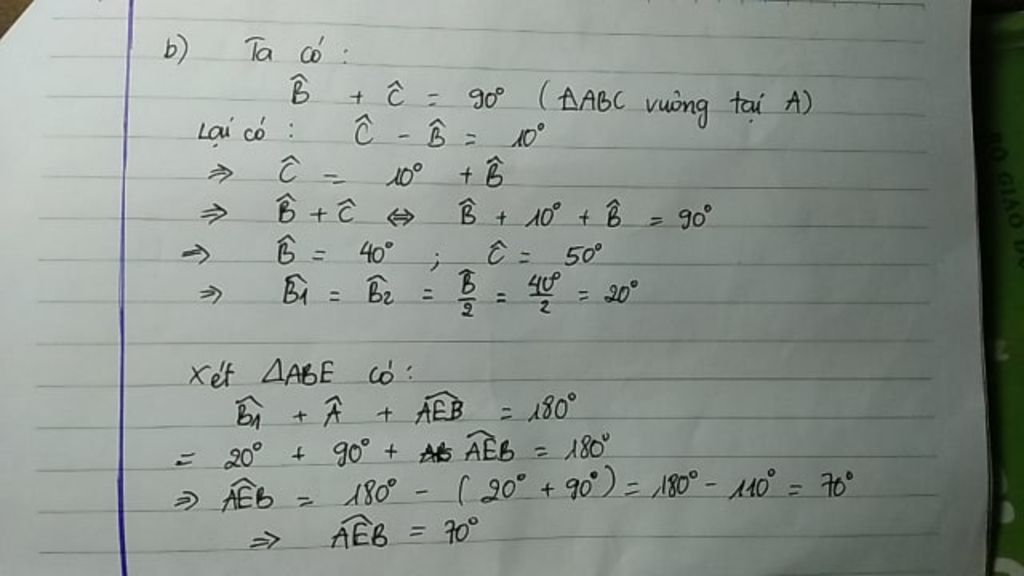 b) Ta có :
B̂ + Ĉ = 90° (ΔABC vuông tại A)
Lại có : Ĉ - B̂ = 10°
⇒ Ĉ = 10° + B̂
⇒ B̂ + Ĉ ⇔ B̂ + 10° + B̂ = 90°
⇒ B̂ = 40° ; Ĉ = 50°
⇒ B̂1 = B̂2 = B̂/2 = 40°/2 = 20°
Xét ΔABE có :
B̂1 + Â + ÂEB = 180°
= 20° + 90° + ÂEB = 180°
⇒ ÂEB = 180° - ( 20° + 90° ) = 180° - 110° = 70°
⇒ ÂEB = 70°